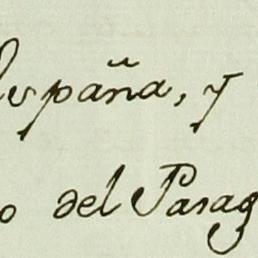 España, y
o del Parag